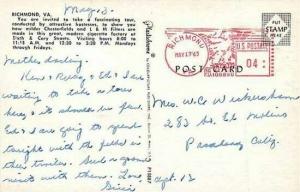 RICHMOND, VA.
You are invited to take a fascinating tour,
conducted by attractive hostesses, to show you
how milder Chesterfields and L & M Filters are
made in this great, modern cigarette factory at
Sixth & Cary Streets. Visiting hours 8:00 to
11:15 A.M. and 12:30 to 3:30 P.M. Mondays
through Fridays.
May 3.
Mother darling
Ken & Betsy & Ed & I am
waiting to take a tour
here & its
Ed & I are going to spend
tonight with the folks in
their trailer. Such a good
visit with them. Love
P15887
PLACE
STAMP
HERE
RICHMOND
MAY 17 '63
U.S. POSTAGE
04
POST CARD
VIRGINIA
Mrs. W C Wickersham
283 So. El Molino
Pasadena Calif.
Apt. 12